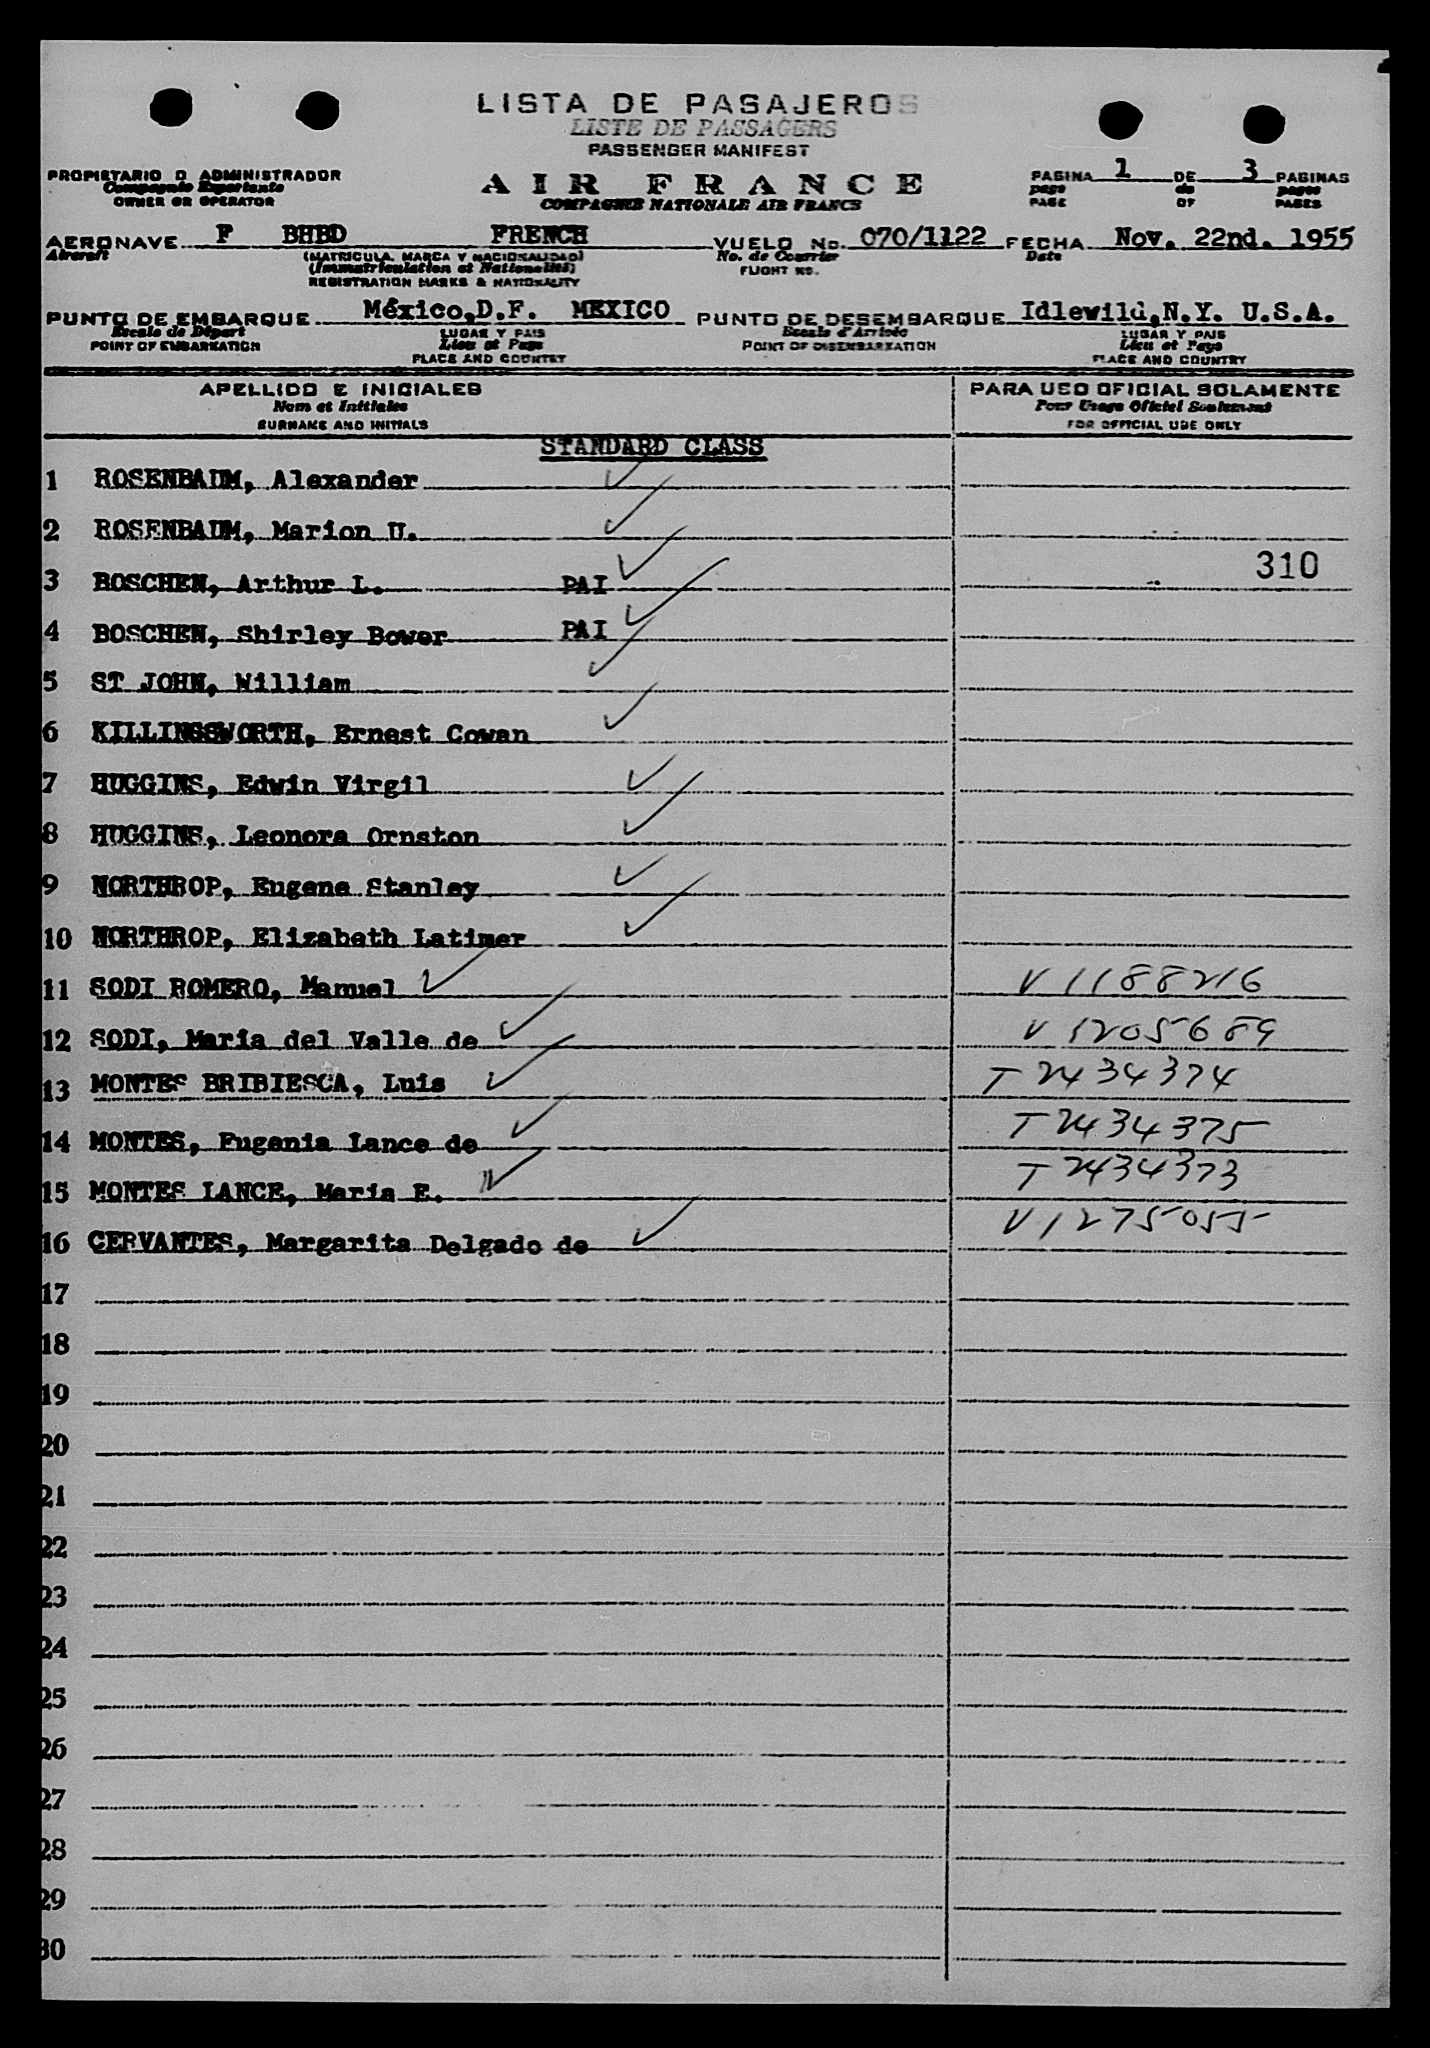 LISTA DE PASAJEROS
LISTE DE PASSAGERS
PASSENGER MANIFEST
PROPIETARIO O ADMINISTRADOR
Compagnie Exportante
OWNER OR OPERATOR
AIR FRANCE
COMPAGNIE NATIONALE AIR FRANCE
PAGINA 1 DE 3 PAGINAS
page de pages
PAGE OF PAGES
AERONAVE F BHBD FRENCH VUELO No. 070/1122 FECHA Nov. 22nd. 1955
Aircraft (MATRICULA, MARCA Y NACIONALIDAD) No. de Courrier Date
(Immatriculation et Nationalité) FLIGHT NO.
REGISTRATION MARKS & NATIONALITY
PUNTO DE EMBARQUE México,D.F. MEXICO PUNTO DE DESEMBARQUE Idlewild,N.Y. U.S.A.
Escale de Départ LUGAR Y PAIS Escale d'Arrivée LUGAR Y PAIS
POINT OF EMBARKATION Lieu et Pays POINT OF DISEMBARKATION Lieu et Pays
PLACE AND COUNTRY PLACE AND COUNTRY
APELLIDO E INICIALES PARA USO OFICIAL SOLAMENTE
Nom et Initiales Pour Usage Officiel Seulement
SURNAME AND INITIALS FOR OFFICIAL USE ONLY
STANDARD CLASS
1 ROSENBAUM, Alexander
2 ROSENBAUM, Marion U.
310
3 BOSCHEN, Arthur L. PAI
4 BOSCHEN, Shirley Bower PAI
5 ST JOHN, William
6 KILLINGSWORTH, Ernest Cowan
7 HUGGINS, Edwin Virgil
8 HUGGINS, Leonora Ornston
9 NORTHROP, Eugene Stanley
10 NORTHROP, Elizabeth Latimer
11 SODI ROMERO, Manuel V 1188216
12 SODI, Maria del Valle de V 1205689
13 MONTES BRIBIESCA, Luis T 2434374
14 MONTES, Eugenia Lance de T 2434375
15 MONTES LANCE, Maria E. T 2434373
16 CERVANTES, Margarita Delgado de V 1275055
17
18
19
20
21
22
23
24
25
26
27
28
29
30